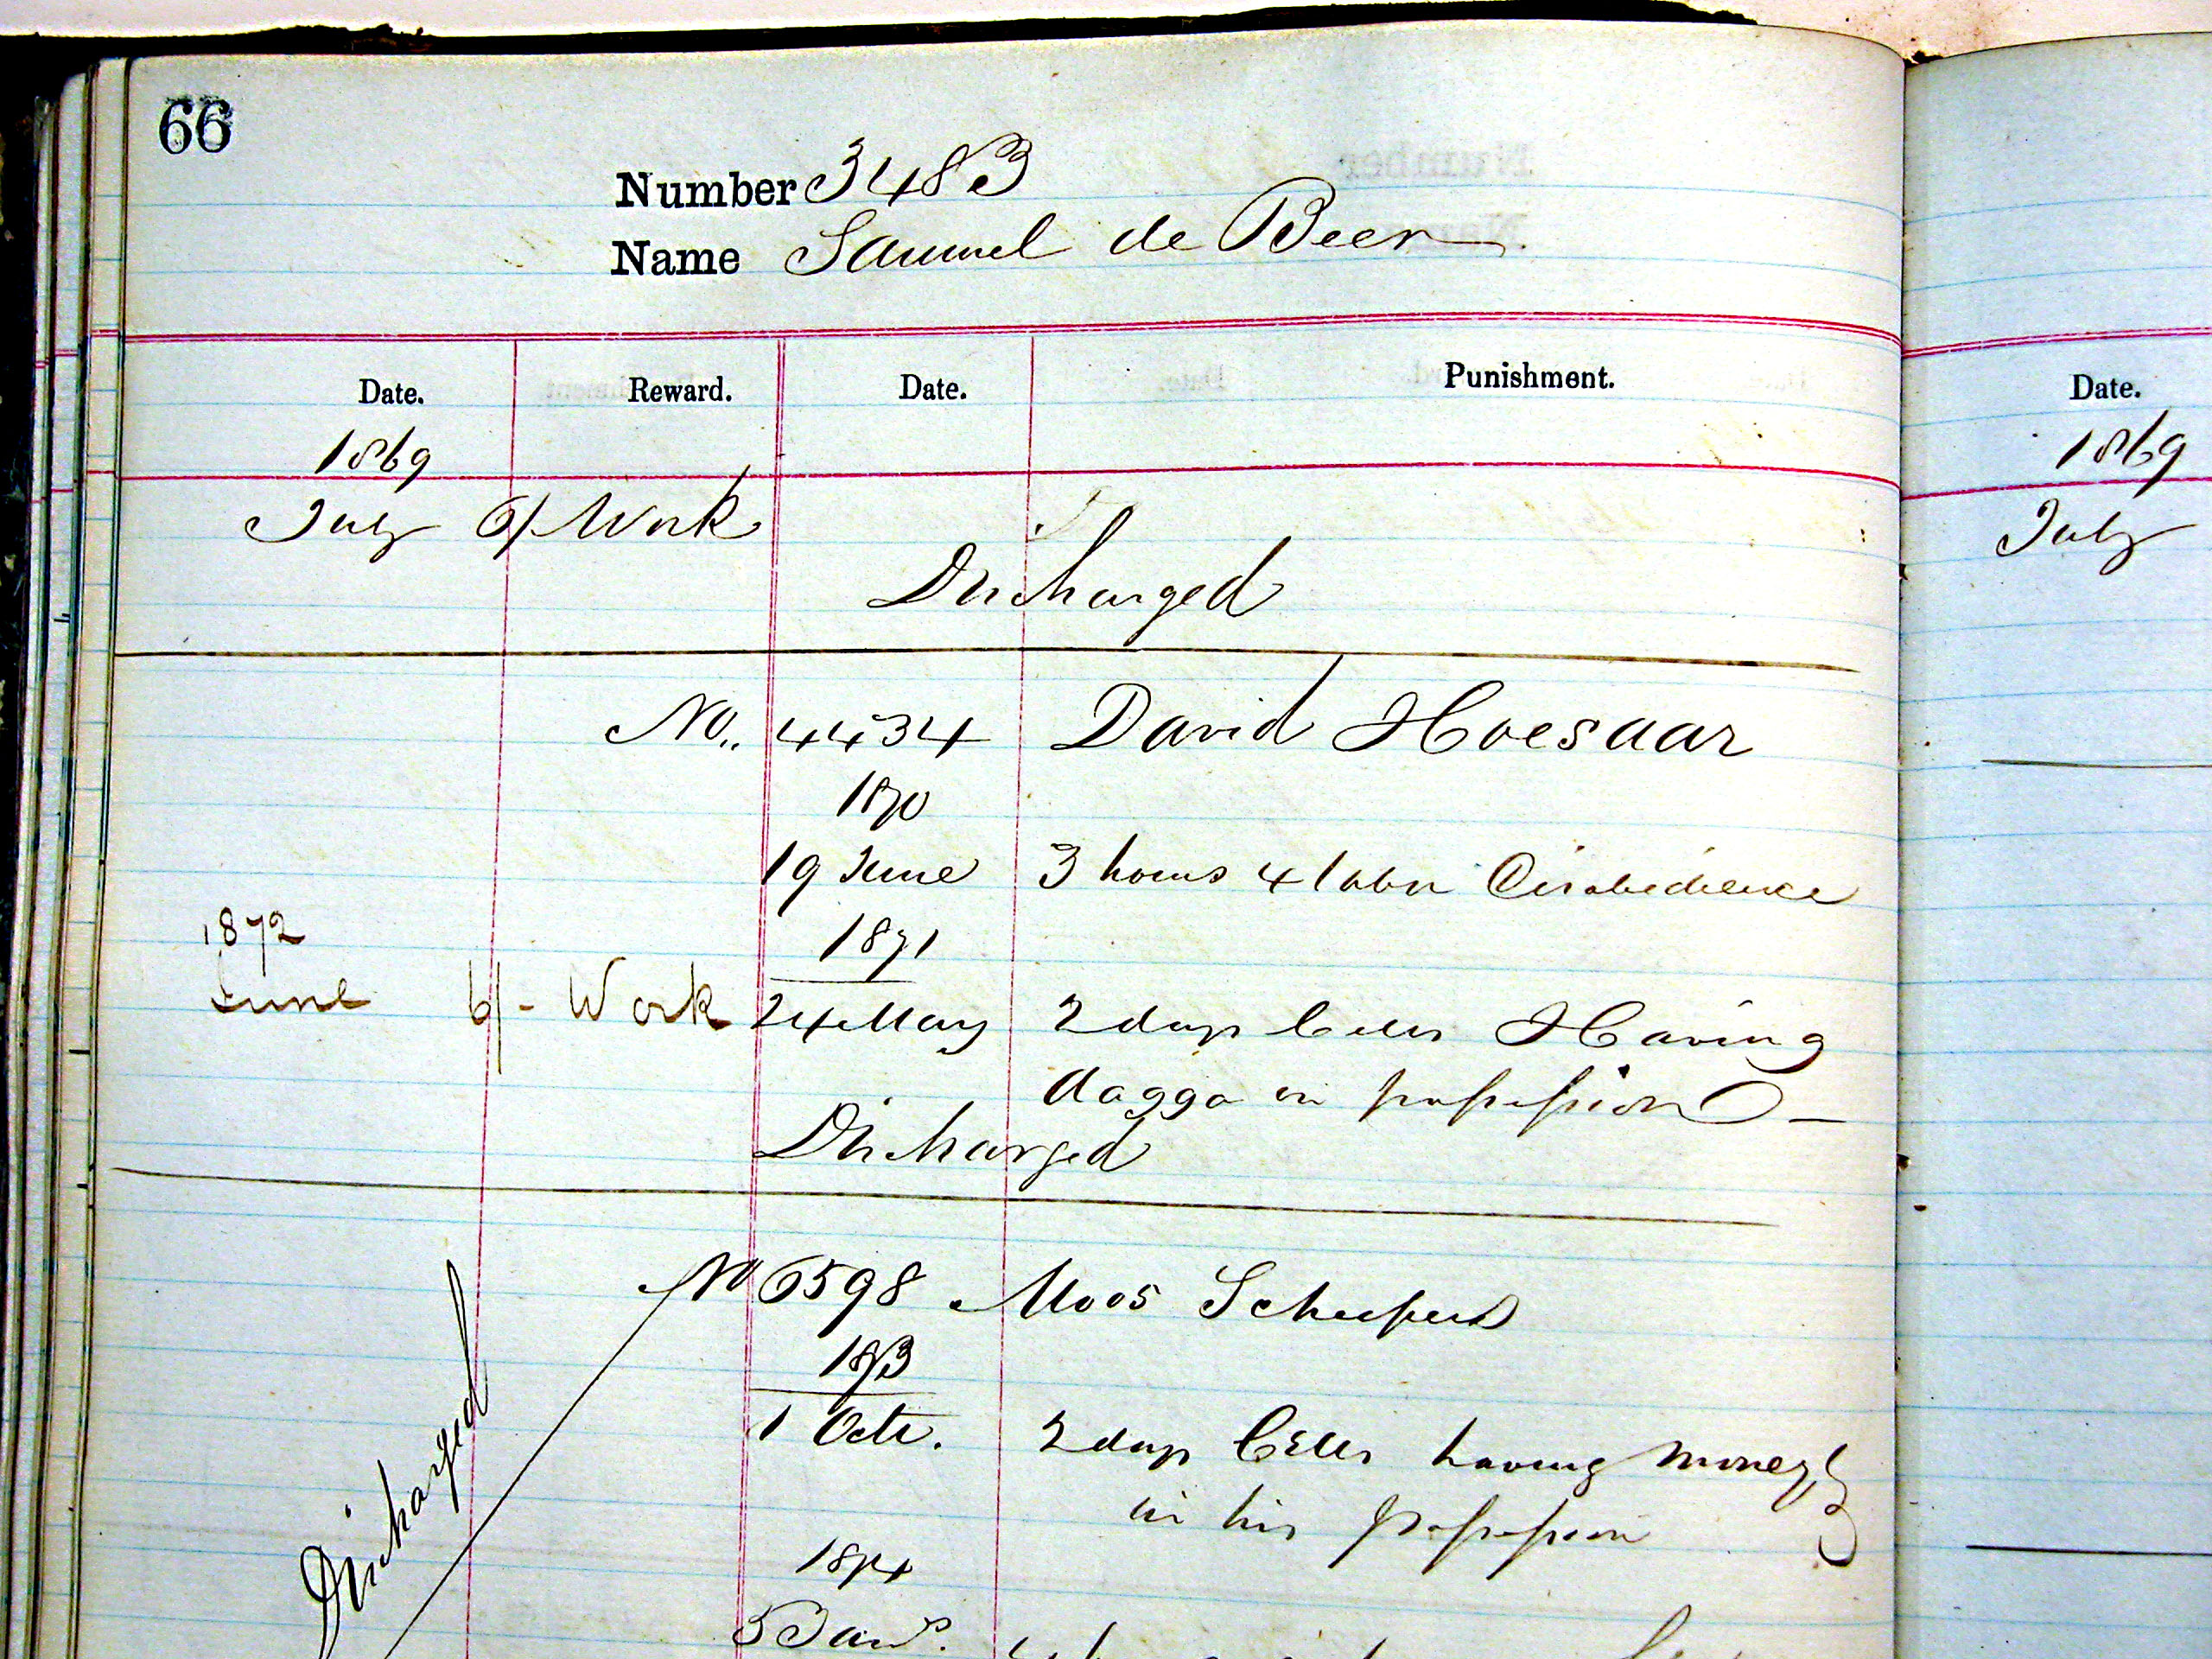 66
Number 3483
Name Samuel de Beer
Date. Reward. Date. Punishment.
1869
July 6/ Work
Discharged
No. 4434 David Hoesaar
1870
19 June 3 hours 4 labr Disobedience
1871
1872
June 6/- Work 24 May 2 days Cells Having
dagga in possession
Discharged
No 6598 Moos Scheepers
1873
1 Octr. 2 days Cells having money
in his possession
Discharged
1874
5 Jany.
Date.
1869
July